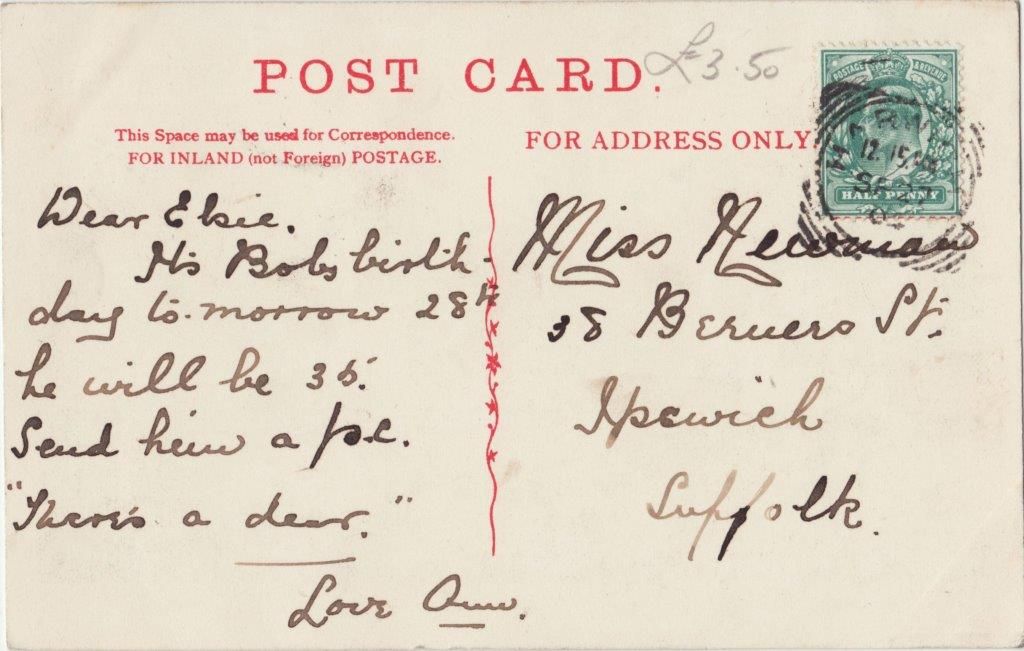 POST CARD.
£3.50
This Space may be used for Correspondence.
FOR INLAND (not Foreign) POSTAGE.
FOR ADDRESS ONLY.
POSTAGE & REVENUE
HALF PENNY
12.15
SP 27
Dear Elsie.
Its Bobs birth-
day to-morrow 28th
he will be 35.
Send him a p.c.
"There's a dear."
Love Ann.
Miss Newman
38 Berners St.
Ipswich
Suffolk.